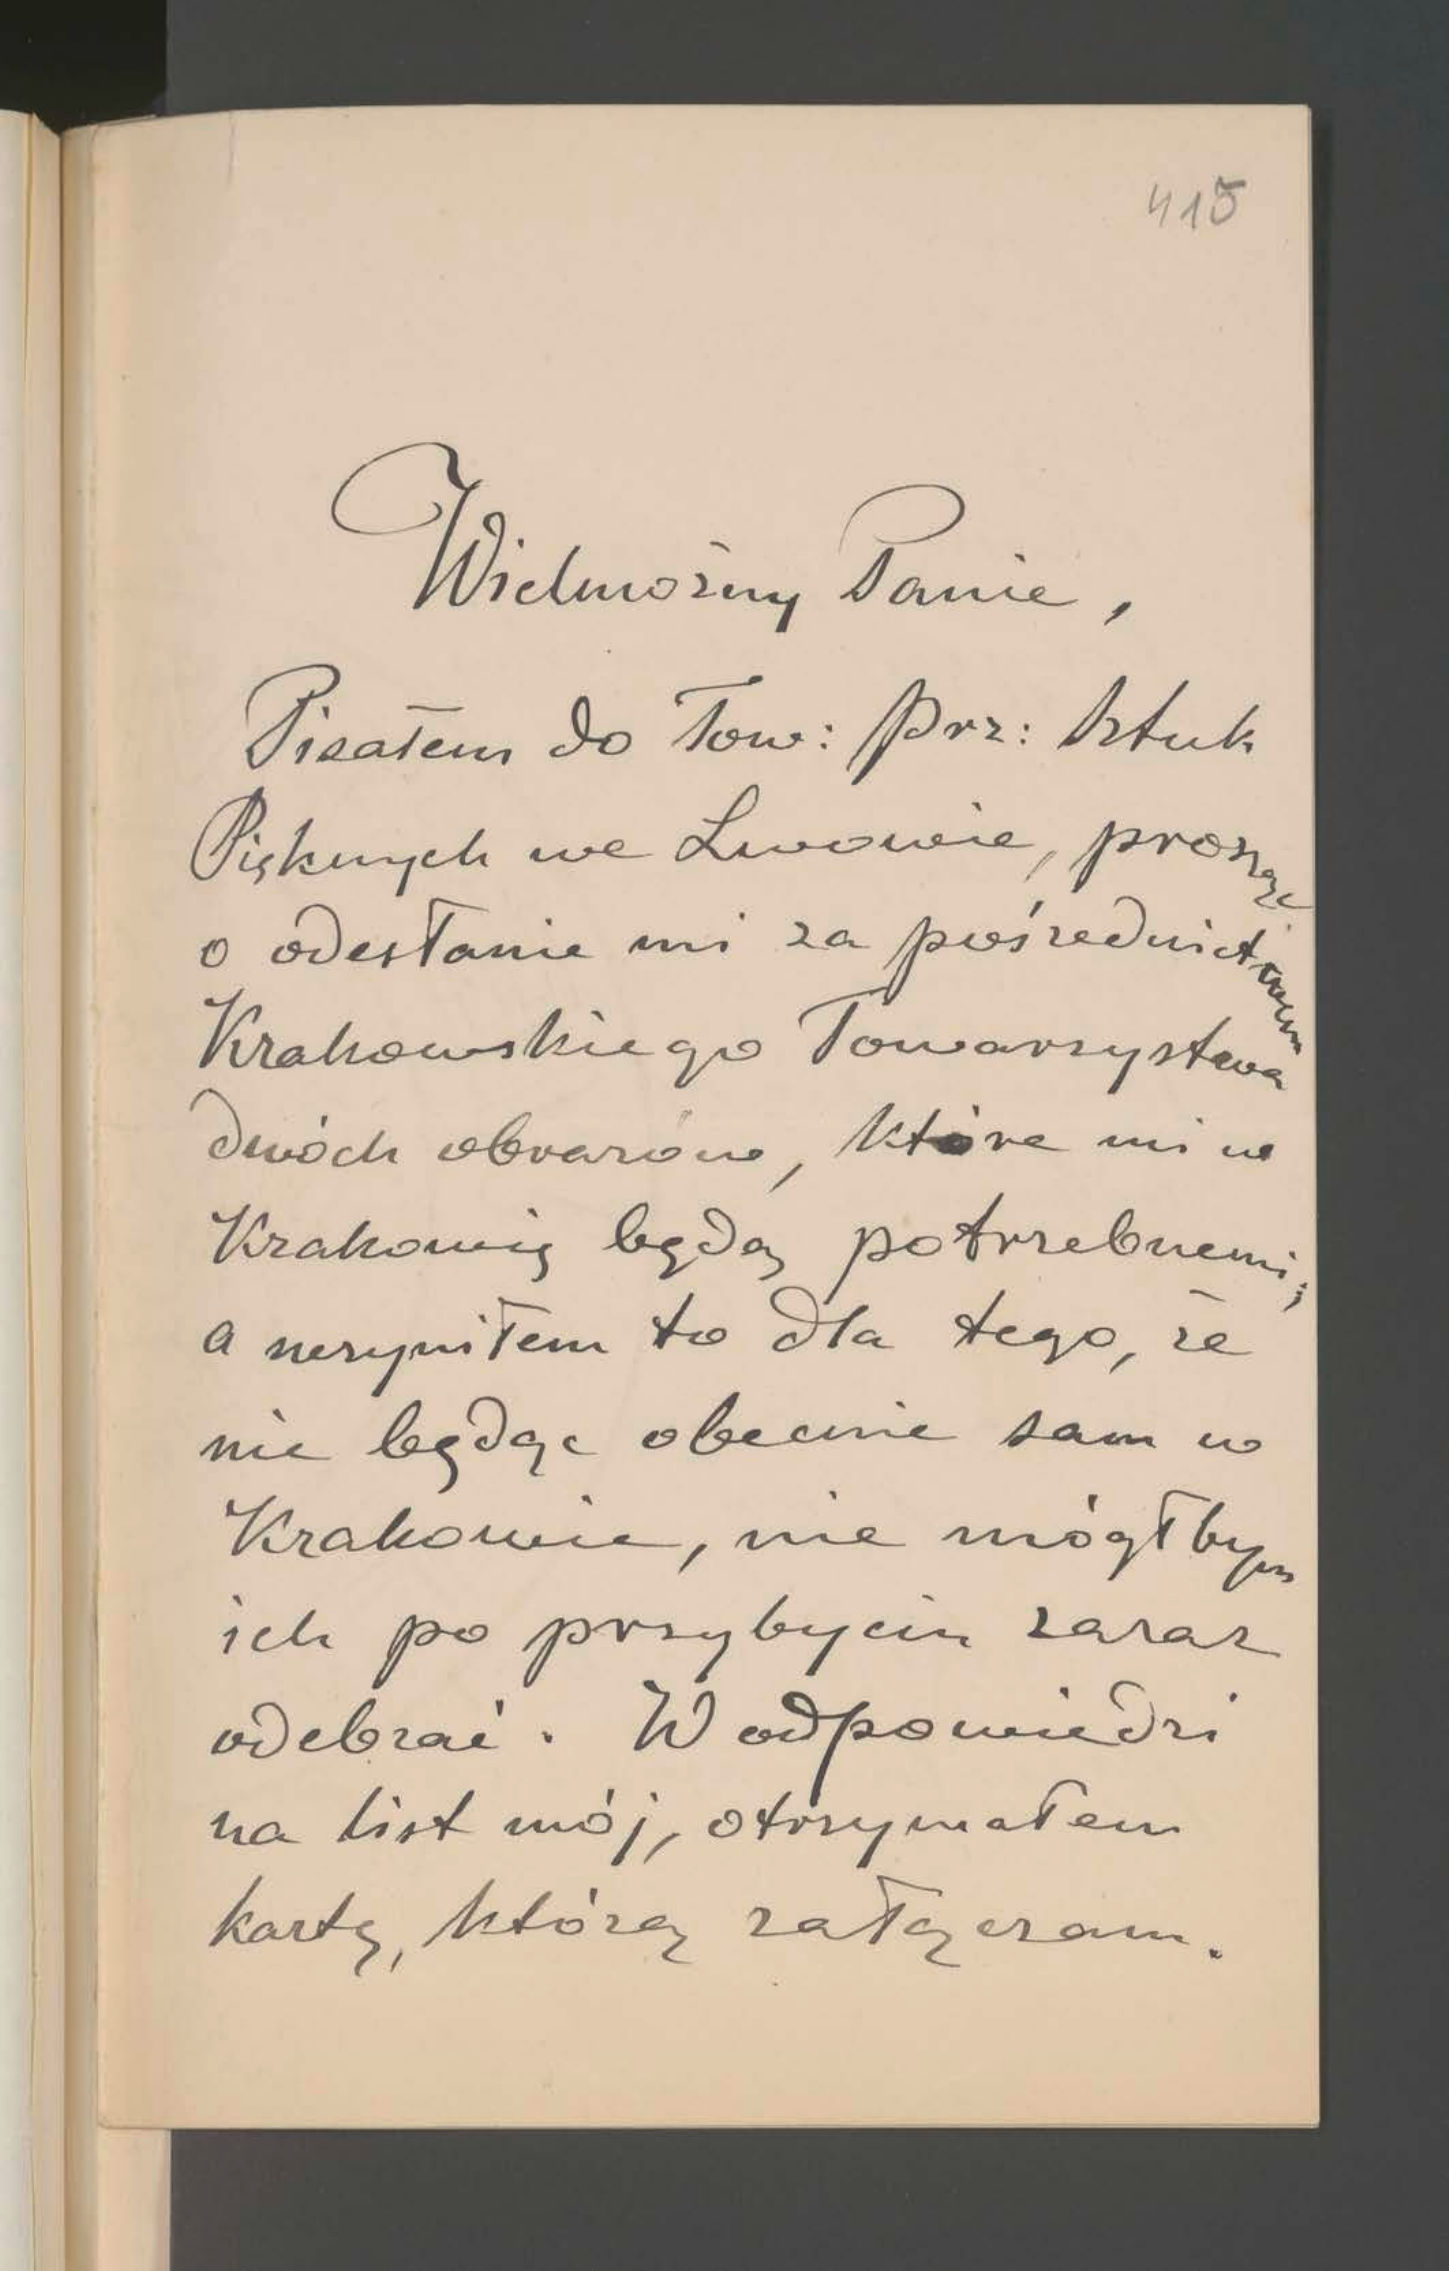 415
Wielmożny Panie,
Pisałem do Tow: Prz: Sztuk
Pięknych we Lwowie, prosząc
o odesłanie mi za pośrednictwem
Krakowskiego Towarzystwa
dwóch obrazów, które mi w
Krakowię będą potrzebnemi;
a uczyniłem to dla tego, że
nie będąc obecnie sam w
Krakowie, nie mógłbym
ich po przybyciu zaraz
odebrać. W odpowiedzi
na list mój, otrzymałem
kartę, którą załączam.